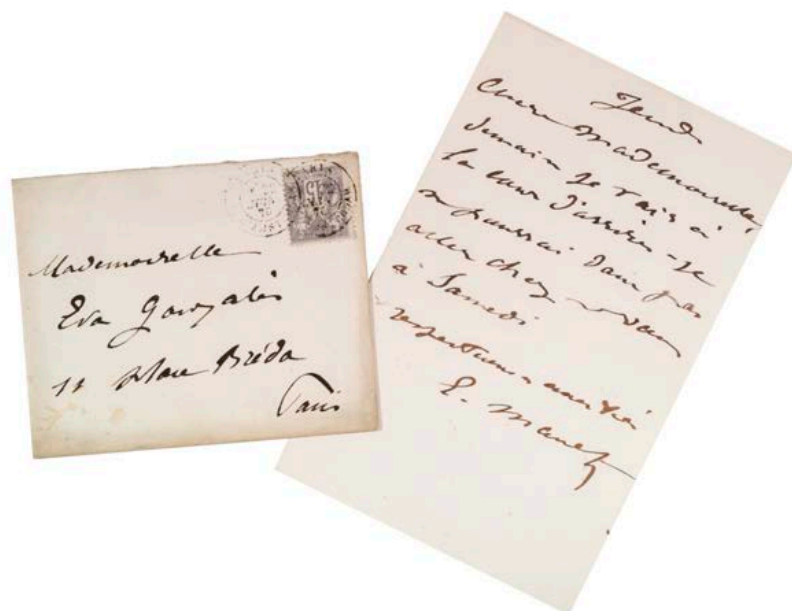 Mademoiselle
Eva Gonzalès
11 place Bréda
Paris
15
Jeudi
Chère Mademoiselle,
demain je vais à
la cour d'assises - je
ne pourrai donc pas
aller chez vous
à Samedi
respectueuses amitiés
E. Manet